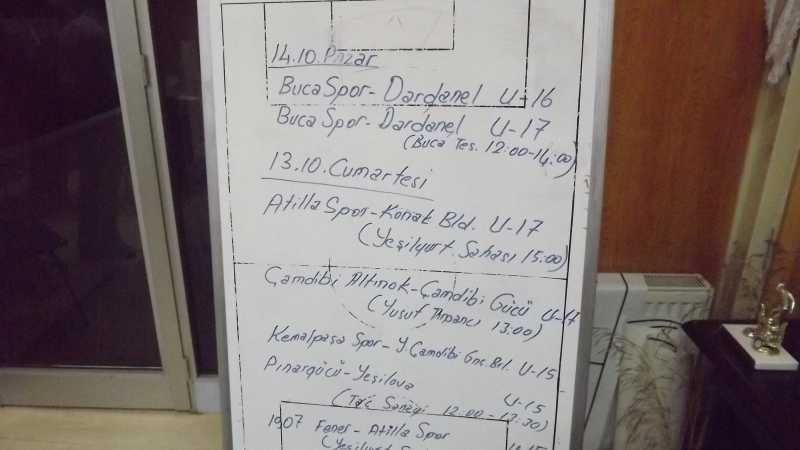 14.10.Pazar
Buca Spor - Dardanel U-16
Buca Spor - Dardanel U-17
(Buca Tes. 12:00-14:00)
13.10.Cumartesi
Atilla Spor - Konak Bld. U-17
(Yeşilyurt Sahası 15.00)
Çamdibi Altınok - Çamdibi Gücü U-17
(Yusuf Tırpancı 13.00)
Kemalpaşa Spor - Y Çamdibi Gnc. Brl. U-15
Pınargücü - Yeşilova U-15
12:00-13:30)
1907 Fener - Atilla Spor
(Yeşilyurt